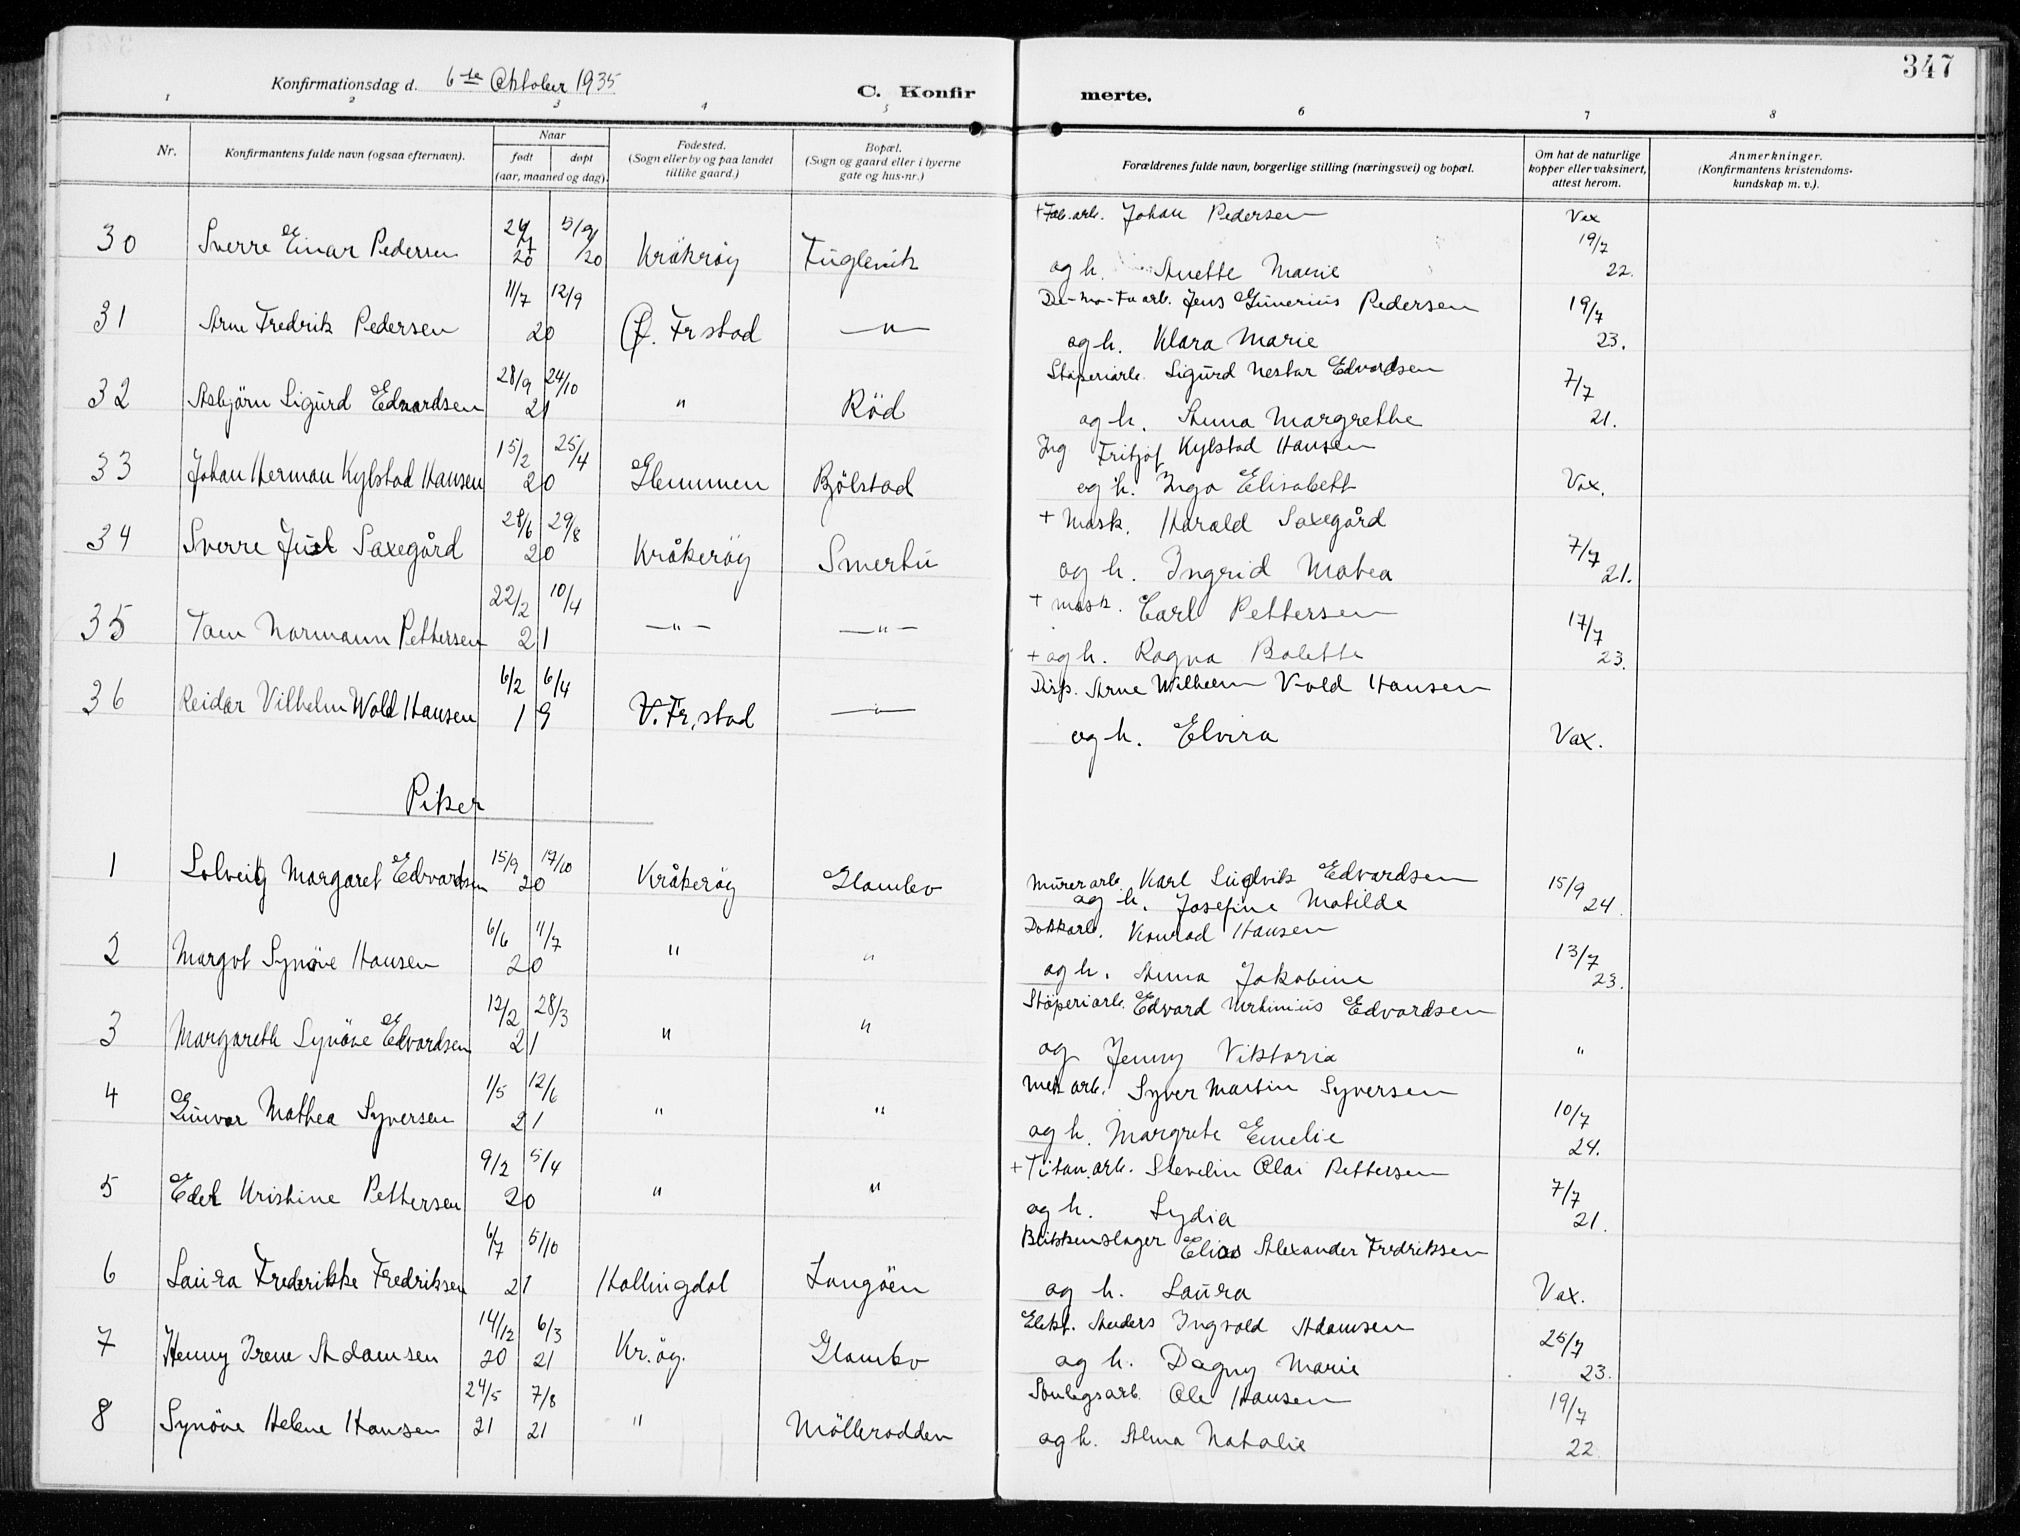 347
Konfirmationsdag d. 6te Oktober 1935
C. Konfirmerte.
1 2 3 4 5 6 7 8
Nr. Konfirmantens fulde navn (ogsaa efternavn). Naar født døpt (aar, maaned og dag). Fødested. (Sogn eller by og paa landet tillike gaard.) Bopæl. (Sogn og gaard eller i byerne gate og hus-nr.) Forældrenes fulde navn, borgerlige stilling (næringsvei) og bopæl. Om hat de naturlige kopper eller vaksinert, attest herom. Anmerkninger. (Konfirmantens kristendomskundskap m. v.).
30 Sverre Einar Pedersen 24/7 20 5/9 20 Kråkrøy Fuglevik + Fab.arb. Johan Pedersen og h. Anette Marie Vax 19/7 22.
31 Arne Fredrik Pedersen 11/7 12/9 20 Ø. Frstad —"— Jens Gunerius Pedersen og h. Klara Marie 19/7 23.
32 Asbjörn Sigurd Edvardsen 28/9 24/10 21 " Röd Stöperiarb. Sigurd Nestor Edvardsen og h. Anna Margrethe 7/7 21.
33 Johan Herman Kylstad Hansen 15/2 25/4 20 Glemmen Bjölstad Ing Fritjof Kylstad Hansen og h. Inga Elisabeth Vax.
34 Sverre Juel Saxegård 28/6 29/8 20 Kråkeröy Smertu + Mask. Harald Saxegård og h. Ingrid Matea 7/7 21.
35 Tom Normann Pettersen 22/2 10/4 21 —"— —"— + Mask. Carl Pettersen + og h. Ragna Bolette 17/7 23.
36 Reidar Vilhelm Wold Hansen 6/2 6/4 19 V. Fr,stad —"— Disp. Arne Wilhelm Vold Hansen og h. Elvira Vax.
Piker
1 Solveig Margaret Edvardsen 15/9 17/10 20 Kråkeröy Glombo Murerarb. Karl Ludvik Edvardsen og h. Josefine Matilde 15/9 24.
2 Margot Synöve Hansen 6/6 11/7 20 " " Dokkarb. Konrad Hansen og h. Anna Jakobine 13/7 23.
3 Margareth Synöve Edvardsen 12/2 28/3 21 " " Stöperiarb. Edvard Martinius Edvardsen og Jenny Viktoria "
4 Gunvor Mathea Syversen 1/5 12/6 21 " " Mek arb. Syver Martin Syversen og h. Margrete Emelie 10/7 24.
5 Edel Kristine Pettersen 9/2 5/4 20 " " + Titan.arb. Stevelin Olai Pettersen og h. Lydia 7/7 21.
6 Laura Frederikke Fredriksen 6/7 5/10 21 Hallingdal Langöen Blikkenslager Elias Alexander Fredriksen og h. Laura Vax.
7 Henny Irene Adamsen 14/12 20 6/3 21 Kr.öy. Glombo Elekt. Anders Ingvald Adamsen og h. Dagny Marie 25/7 23.
8 Synöve Helene Hansen 24/5 21 7/8 21 " Möllerodden Ole Hansen og h. Alma Natalie 19/7 22